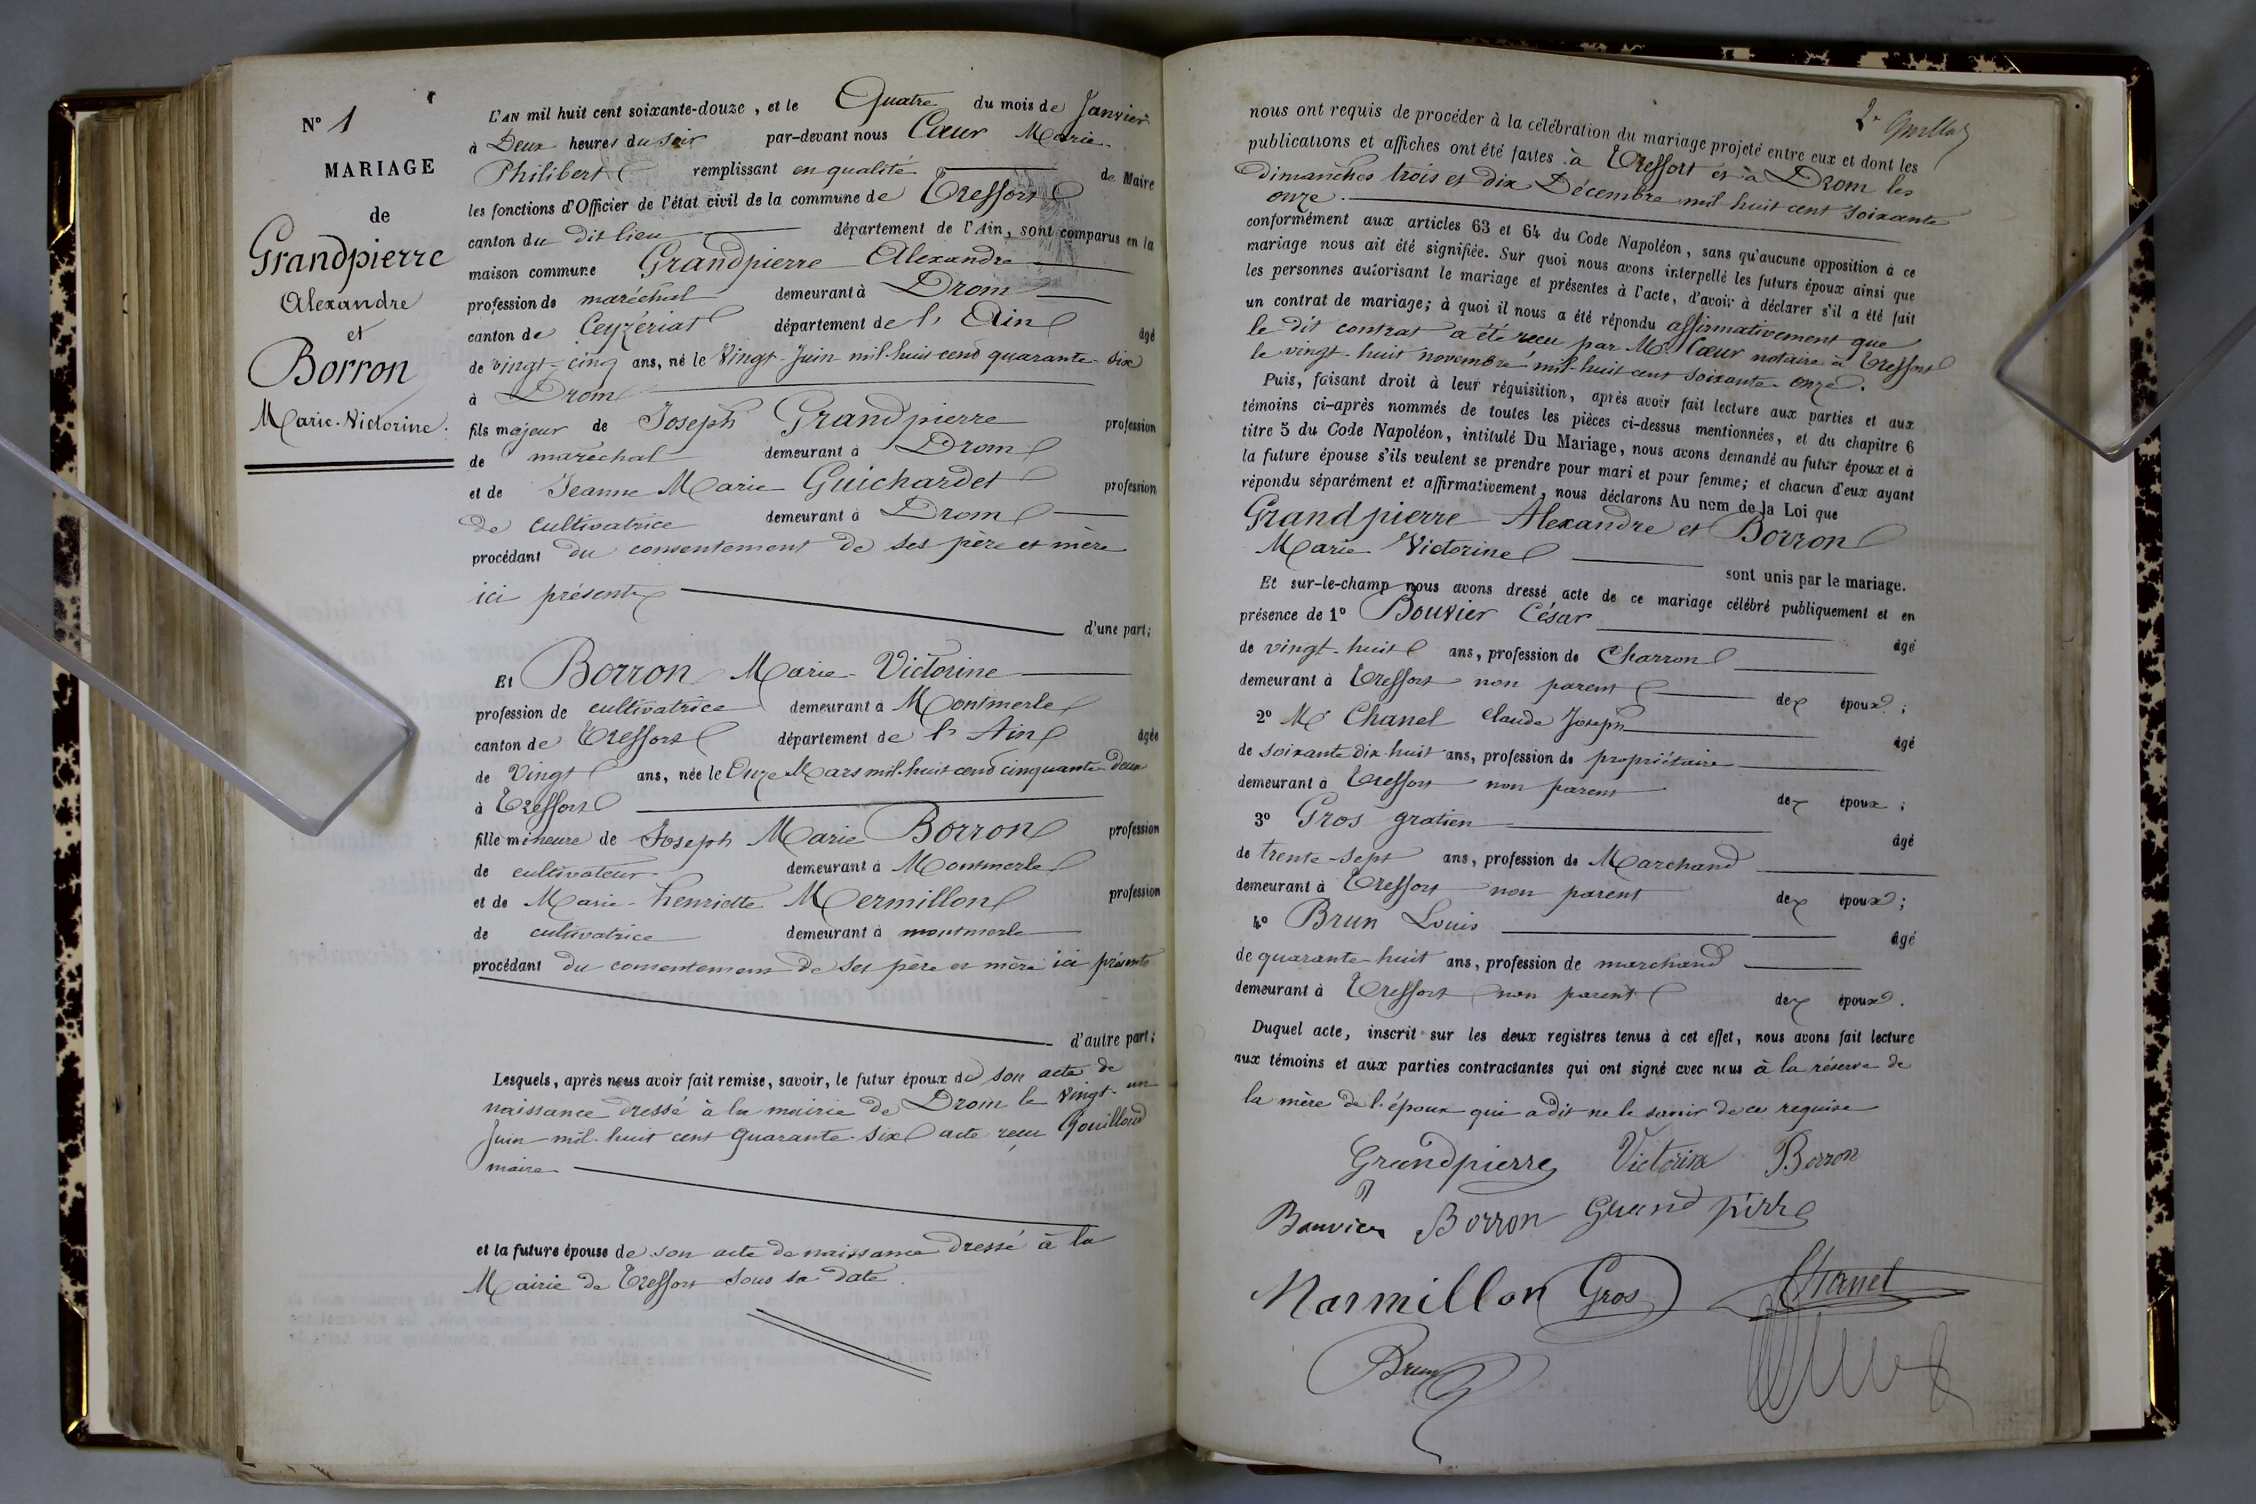 N° 1
MARIAGE
de
Grandpierre
Alexandre
et
Borron
Marie-Victorine.
L'AN mil huit cent soixante-douze, et le Quatre du mois de Janvier
à Deux heures du soir par-devant nous Cœur Marie-
Philibert remplissant en qualité de Maire
les fonctions d'Officier de l'état civil de la commune de Treffort
canton du dit lieu département de l'Ain, sont comparus en la
maison commune Grandpierre Alexandre
profession de maréchal demeurant à Drom
canton de Ceyzériat département de l'Ain âgé
de vingt-cinq ans, né le Vingt-Juin mil-huit cent quarante-six
à Drom
fils majeur de Joseph Grandpierre profession
de maréchal demeurant à Drom
et de Jeanne Marie Guichardet profession
de cultivatrice demeurant à Drom
procédant du consentement de ses père et mère
ici présents
d'une part;
Et Borron Marie-Victorine
profession de cultivatrice demeurant à Montmerle
canton de Treffort département de l'Ain âgée
de Vingt ans, née le Onze Mars mil-huit cent cinquante-Deux
à Treffort
fille mineure de Joseph Marie Borron profession
de cultivateur demeurant à Montmerle
et de Marie-henriette Mermillon profession
de cultivatrice demeurant à montmerle
procédant du consentement de ses père et mère ici présents
d'autre part;
Lesquels, après nous avoir fait remise, savoir, le futur époux de son acte de
naissance dressé à la mairie de Drom le vingt-un
Juin mil-huit cent quarante-six acte reçu Gouilloud
maire
et la future épouse de son acte de naissance dressé à la
Mairie de Treffort sous sa date.
nous ont requis de procéder à la célébration du mariage projeté entre eux et dont les
publications et affiches ont été faites à Treffort et à Drom les
dimanches trois et dix Décembre mil huit cent soixante
onze.
conformément aux articles 63 et 64 du Code Napoléon, sans qu'aucune opposition à ce
mariage nous ait été signifiée. Sur quoi nous avons interpellé les futurs époux ainsi que
les personnes autorisant le mariage et présentes à l'acte, d'avoir à déclarer s'il a été fait
un contrat de mariage; à quoi il nous a été répondu affirmativement que
le dit contrat a été reçu par Me Cœur notaire à Treffort
le vingt-huit novembre mil-huit cent soixante-onze.
Puis, faisant droit à leur réquisition, après avoir fait lecture aux parties et aux
témoins ci-après nommés de toutes les pièces ci-dessus mentionnées, et du chapitre 6
titre 5 du Code Napoléon, intitulé Du Mariage, nous avons demandé au futur époux et à
la future épouse s'ils veulent se prendre pour mari et pour femme; et chacun d'eux ayant
répondu séparément et affirmativement, nous déclarons Au nom de la Loi que
Grandpierre Alexandre et Borron
Marie Victorine sont unis par le mariage.
Et sur-le-champ nous avons dressé acte de ce mariage célébré publiquement et en
présence de 1° Bouvier César âgé
de vingt-huit ans, profession de Charron
demeurant à Treffort non parent des époux;
2° Mr Chanel Claude Joseph âgé
de soixante dix-huit ans, profession de propriétaire
demeurant à Treffort non parent des époux;
3° Gros gratien âgé
de trente-sept ans, profession de Marchand
demeurant à Treffort non parent des époux;
4° Brun Louis âgé
de quarante-huit ans, profession de marchand
demeurant à Treffort non parent des époux.
Duquel acte, inscrit sur les deux registres tenus à cet effet, nous avons fait lecture
aux témoins et aux parties contractantes qui ont signé avec nous à la réserve de
la mère de l'époux qui a dit ne le savoir de ce requise
Grandpierre Victorine Borron
Bouvier Borron Grandpierre
Marmillon Gros Chanel
Brun